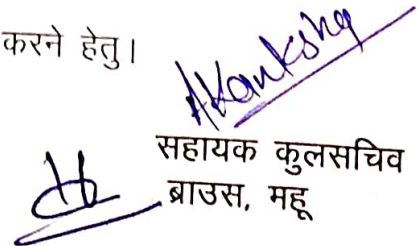 करने हेतु।
Akanksha
सहायक कुलसचिव
ब्राउस, महू